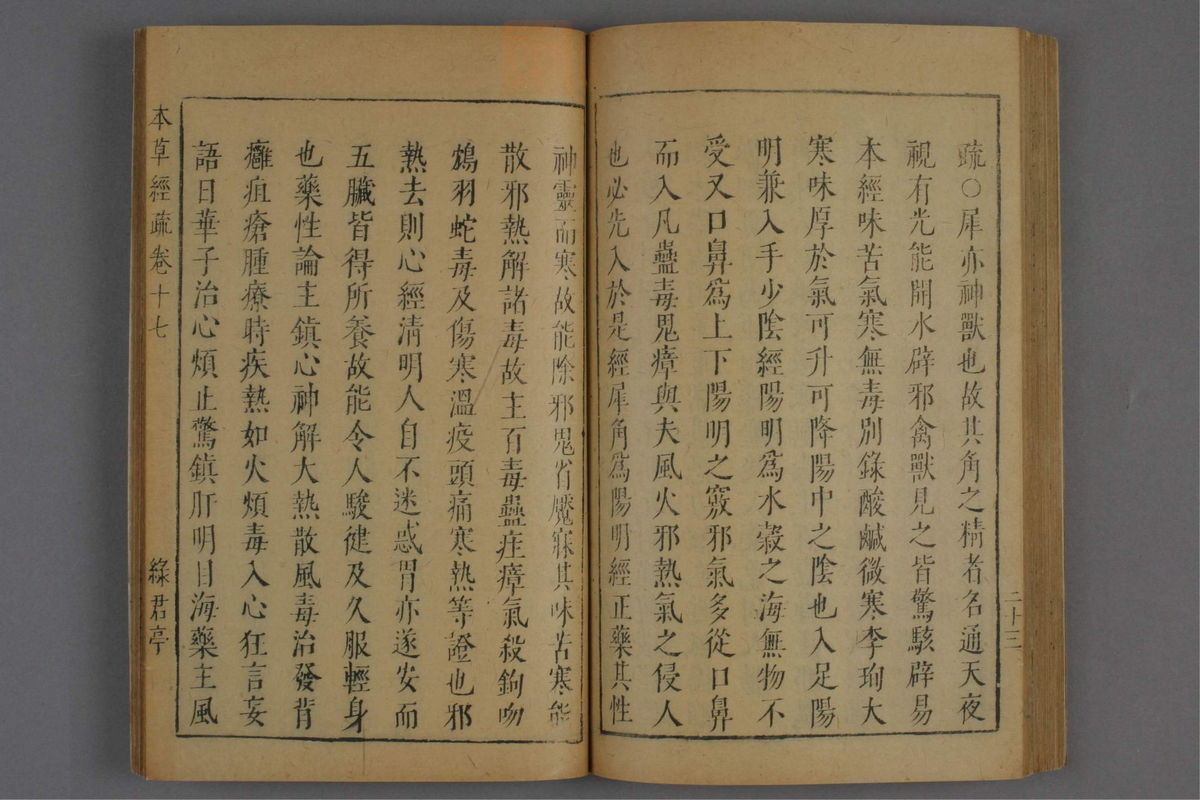 疏○犀亦神獸也故其角之精者名通天夜
視有光能開水辟邪禽獸見之皆驚駭辟易
本經味苦氣寒無毒別錄酸鹹微寒李珣大
寒味厚於氣可升可降陽中之陰也入足陽
明兼入手少陰經陽明為水穀之海無物不
受又口鼻為上下陽明之竅邪氣多從口鼻
而入凡蠱毒鬼瘴與夫風火邪熱氣之侵人
也必先入於是經犀角為陽明經正藥其性
二十三
神靈而寒故能除邪鬼省魘寐其味苦寒能
散邪熱解諸毒故主百毒蠱疰瘴氣殺鉤吻
鴆羽蛇毒及傷寒溫疫頭痛寒熱等證也邪
熱去則心經清明人自不迷惑胃亦遂安而
五臟皆得所養故能令人駿健及久服輕身
也藥性論主鎮心神解大熱散風毒治發背
癰疽瘡腫療時疾熱如火煩毒入心狂言妄
語日華子治心煩止驚鎮肝明目海藥主風
本草經疏卷十七
綠君亭